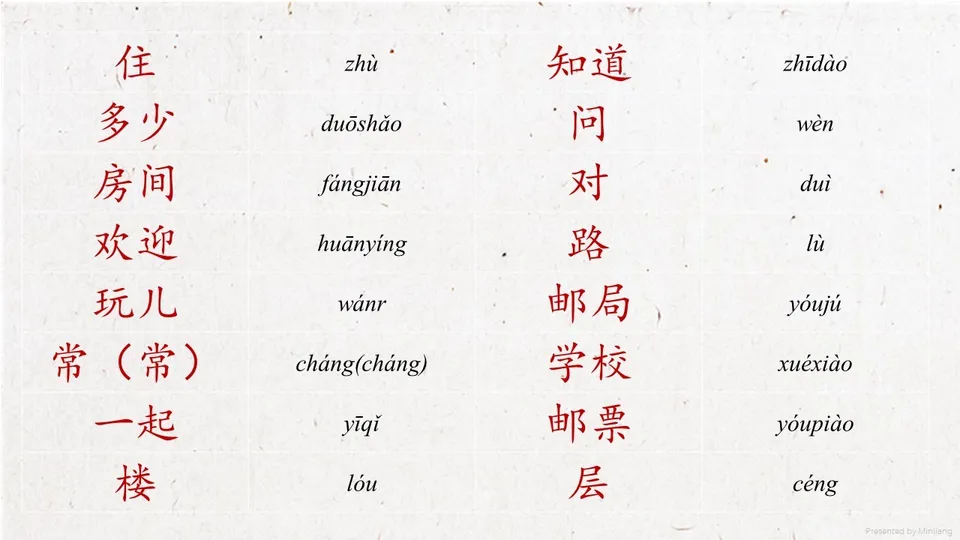 住 zhù 知道 zhīdào
多少 duōshǎo 问 wèn
房间 fángjiān 对 duì
欢迎 huānyíng 路 lù
玩儿 wánr 邮局 yóujú
常（常） cháng(cháng) 学校 xuéxiào
一起 yīqǐ 邮票 yóupiào
楼 lóu 层 céng
Presented by Minjiang